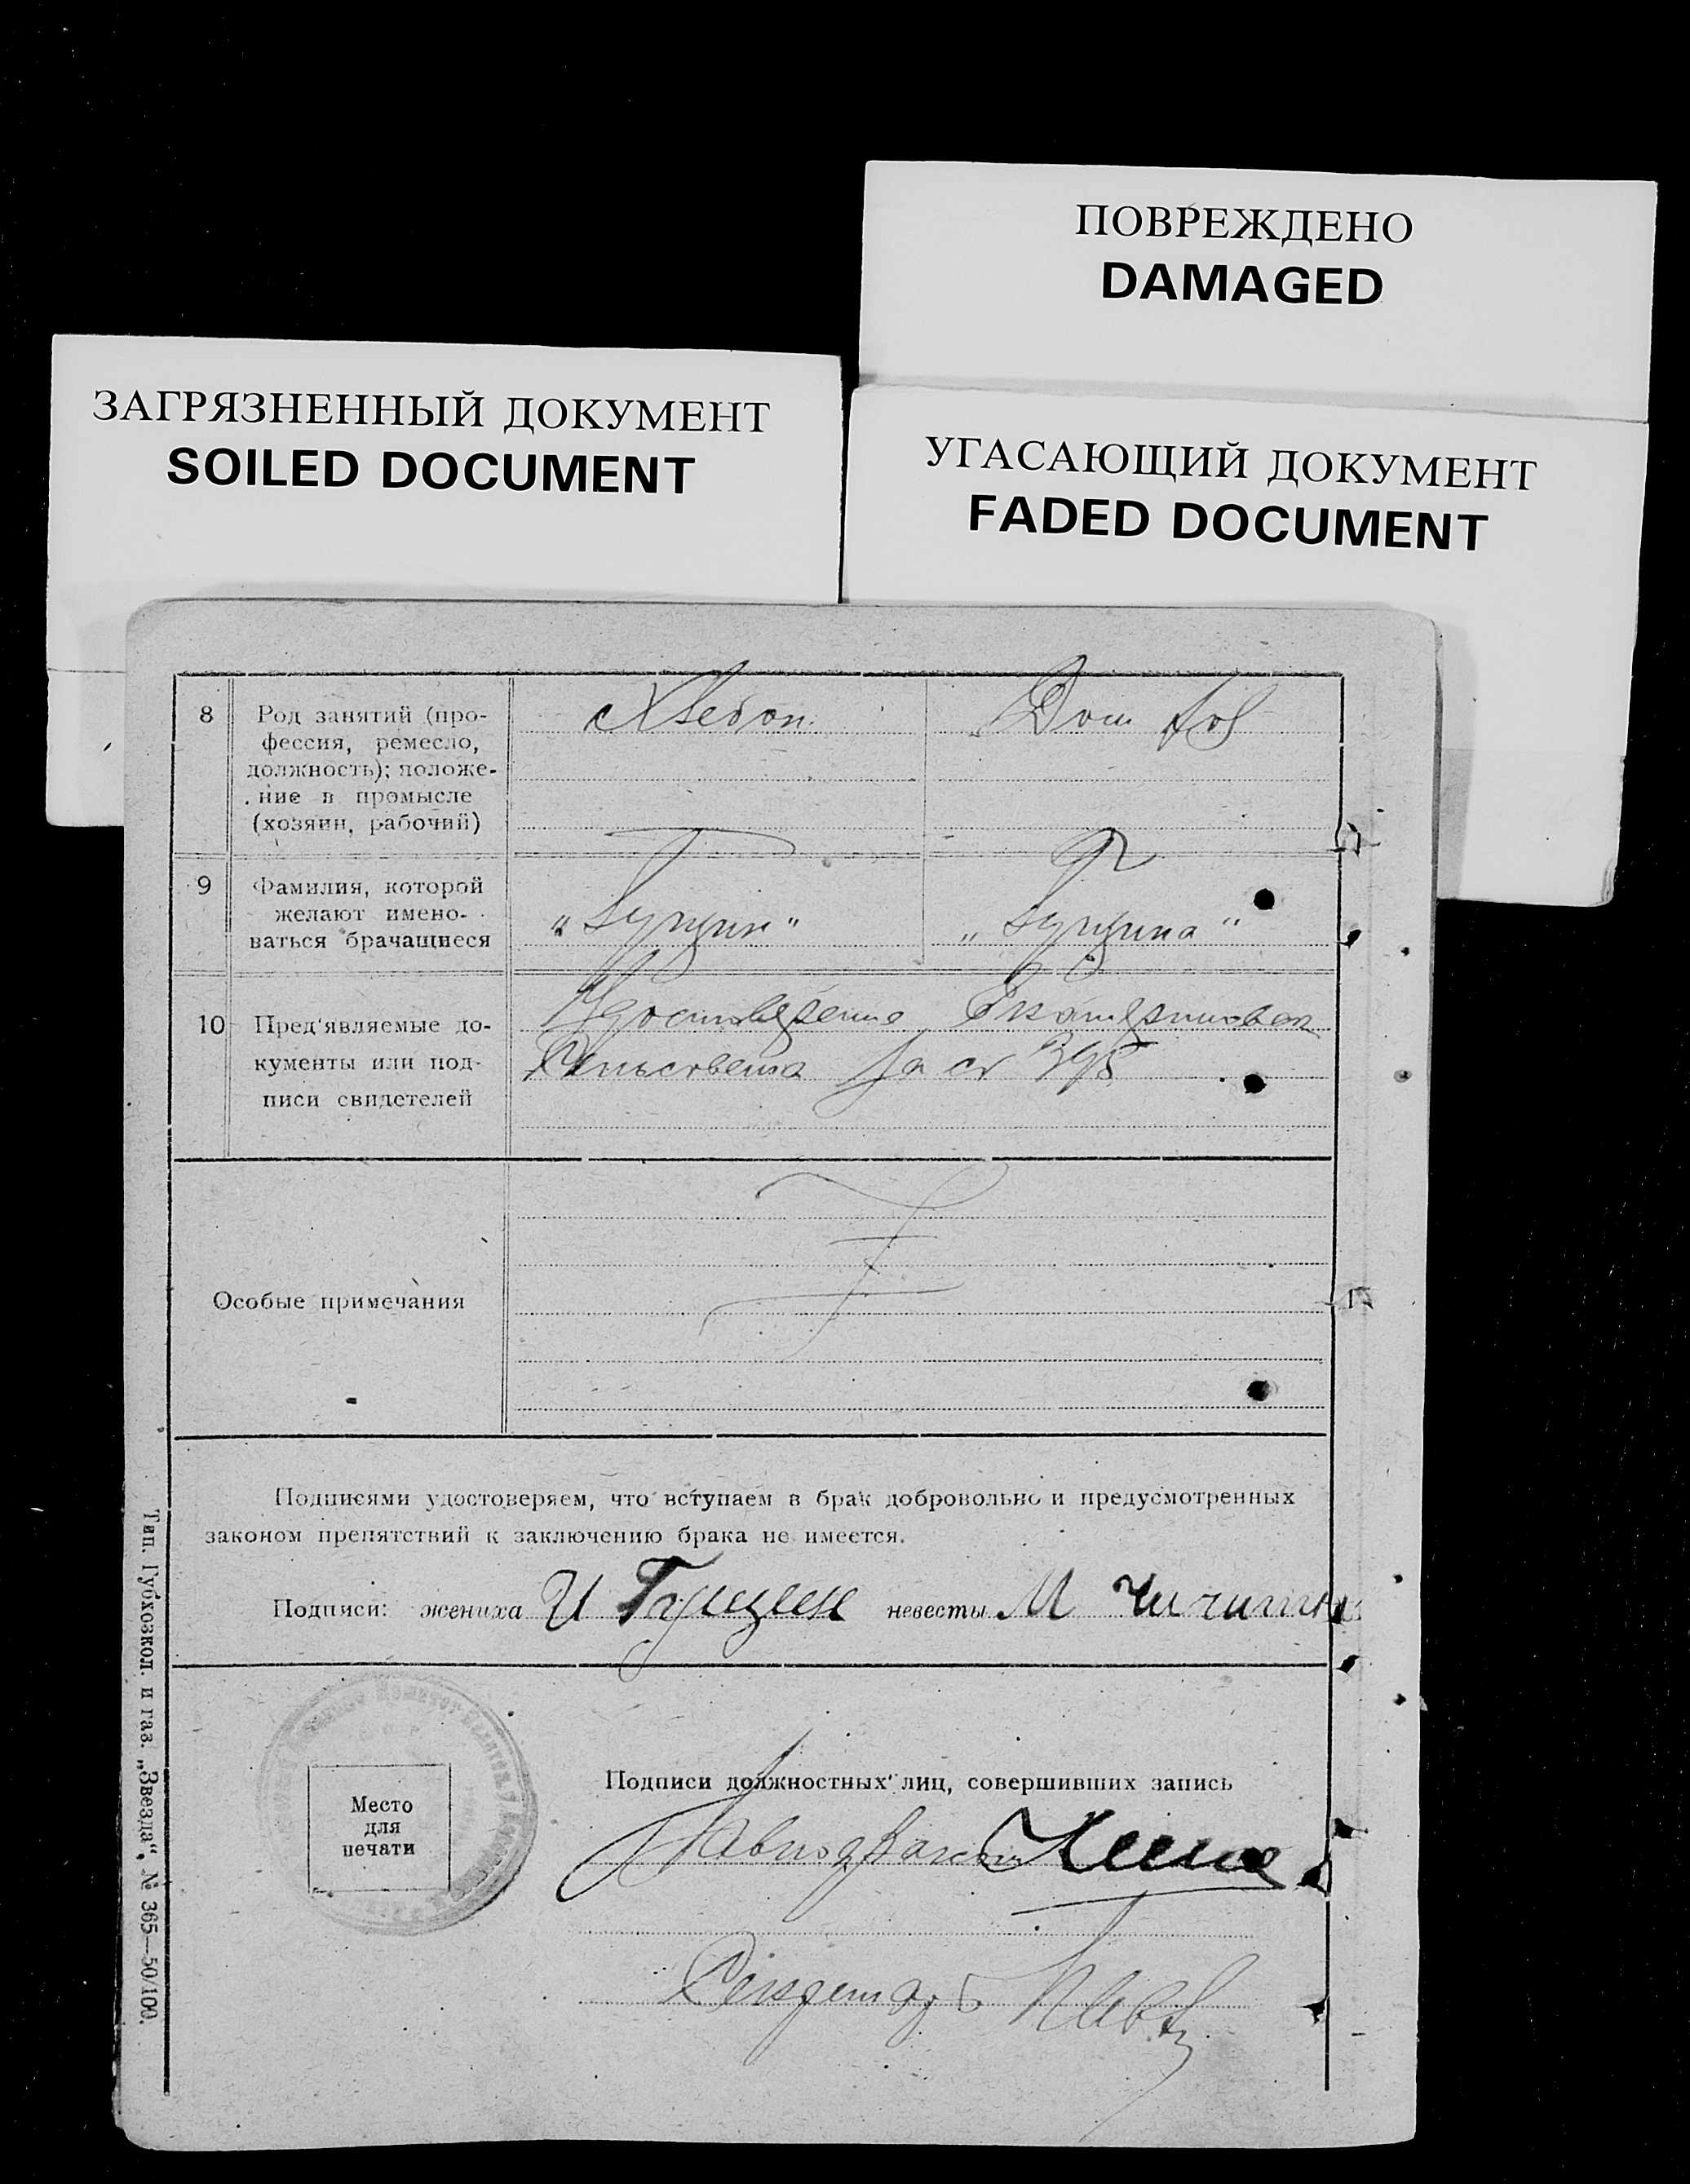 ПОВРЕЖДЕНО
DAMAGED
ЗАГРЯЗНЕННЫЙ ДОКУМЕНТ
SOILED DOCUMENT
УГАСАЮЩИЙ ДОКУМЕНТ
FADED DOCUMENT
8 Род занятий (про-
фессия, ремесло,
должность); положе-
ние в промысле
(хозяин, рабочий)
Хлебоп. Дом хоз
9 Фамилия, которой
желают имено-
ваться брачащиеся
"Гущин" "Гущина"
10 Пред'являемые до-
кументы или под-
писи свидетелей
Удостоверение
Сельсовета за №
Особые примечания
Подписями удостоверяем, что вступаем в брак добровольно и предусмотренных
законом препятствий к заключению брака не имеется.
Подписи: жениха И Гущин невесты М
Место
для
печати
Подписи должностных лиц, совершивших запись
Тип. Губхозкол. и газ. „Звезда", № 365—50/100.